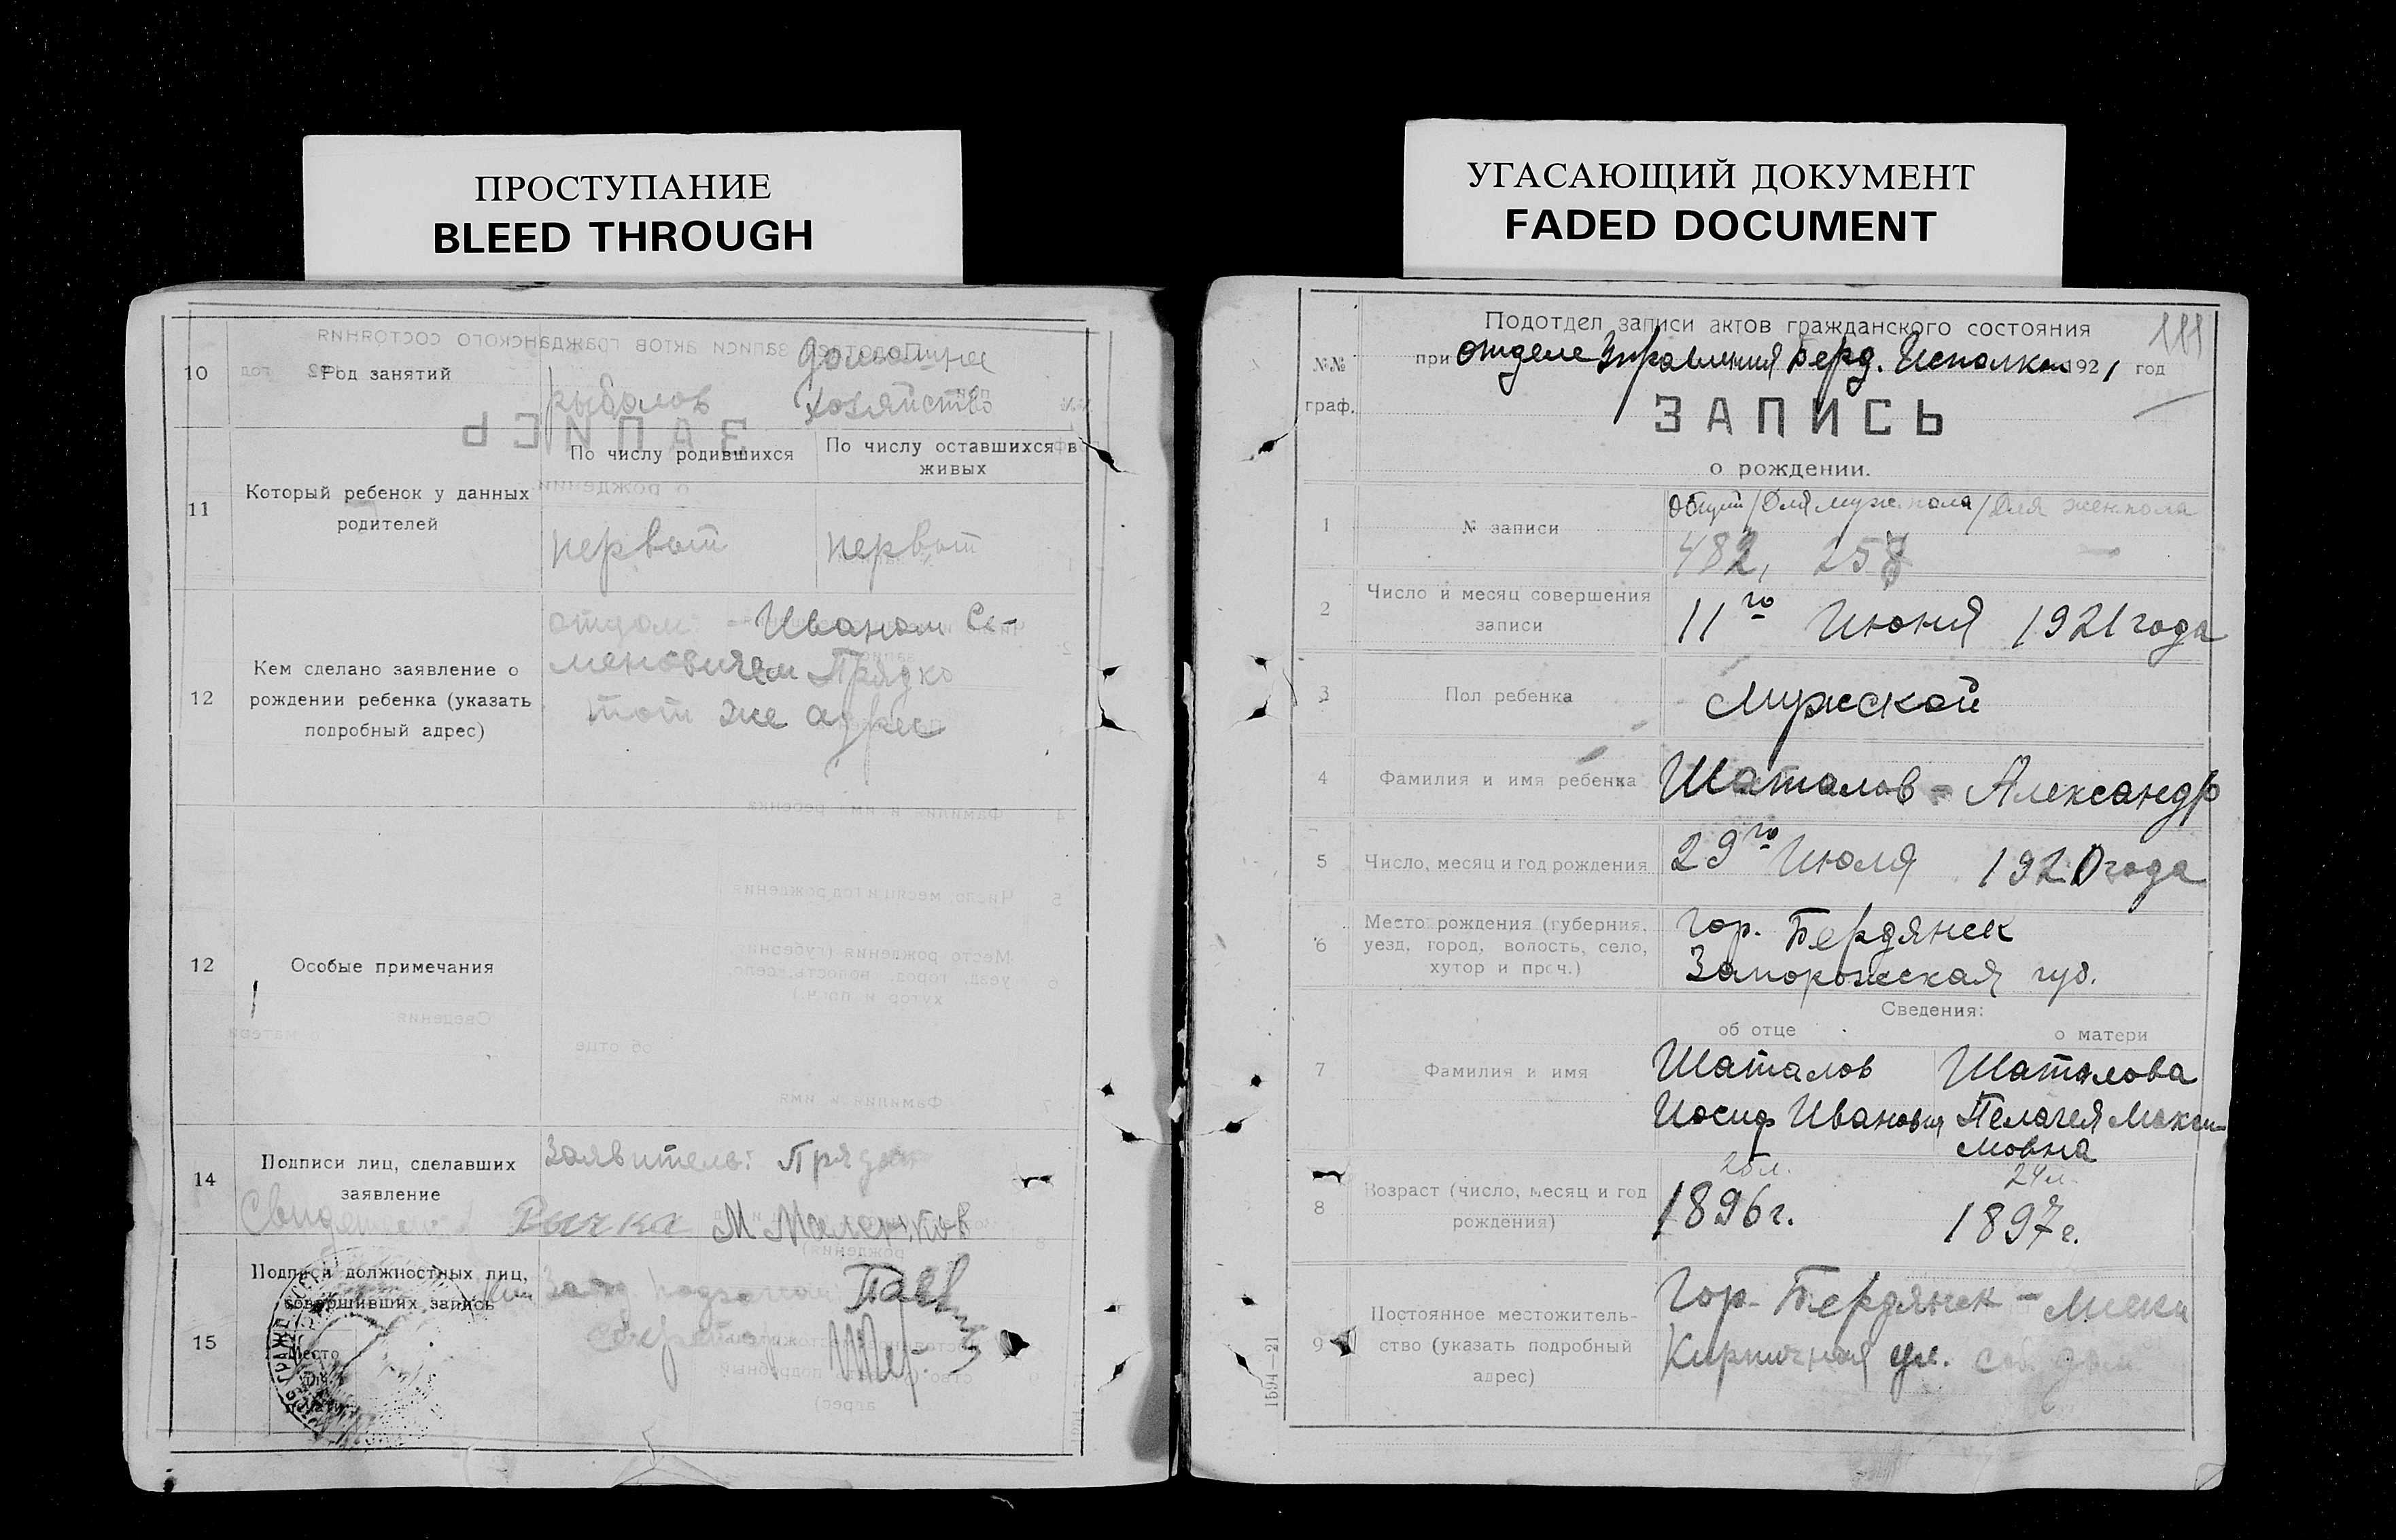 ПРОСТУПАНИЕ
BLEED THROUGH
10
Род занятий
рыболов
домашнее
хозяйство
11
Который ребенок у данных
родителей
По числу родившихся
По числу оставшихся в
живых
первый
первый
12
Кем сделано заявление о
рождении ребенка (указать
подробный адрес)
отцом - Иваном Се-
меновичем Прядко
тот же адрес
12
Особые примечания
14
Подписи лиц, сделавших
заявление
Заявитель: Прядко
Свидетели: М Маленков
15
Подписи должностных лиц,
совершивших запись
Место
УГАСАЮЩИЙ ДОКУМЕНТ
FADED DOCUMENT
№№
граф.
Подотдел записи актов гражданского состояния
при отделе Управления Берд. Исполком 1921 год
ЗАПИСЬ
о рождении.
1
№ записи
Общий / Для муж. пола / Для жен. пола
482, 258 —
2
Число и месяц совершения
записи
11го Июня 1921 года
3
Пол ребенка
Мужской
4
Фамилия и имя ребенка
Шаталов - Александр
5
Число, месяц и год рождения
29го Июля 1920 года
6
Место рождения (губерния,
уезд, город, волость, село,
хутор и проч.)
Гор. Бердянск
Запорожская губ.
Сведения:
об отце
о матери
7
Фамилия и имя
Шаталов
Иосиф Иванович
Шаталова
Пелагея Макси-
мовна
8
Возраст (число, месяц и год
рождения)
25 л.
1896 г.
24 л.
1897 г.
9
Постоянное местожитель-
ство (указать подробный
адрес)
Гор. Бердянск -
Кирпичная ул.
1594—21